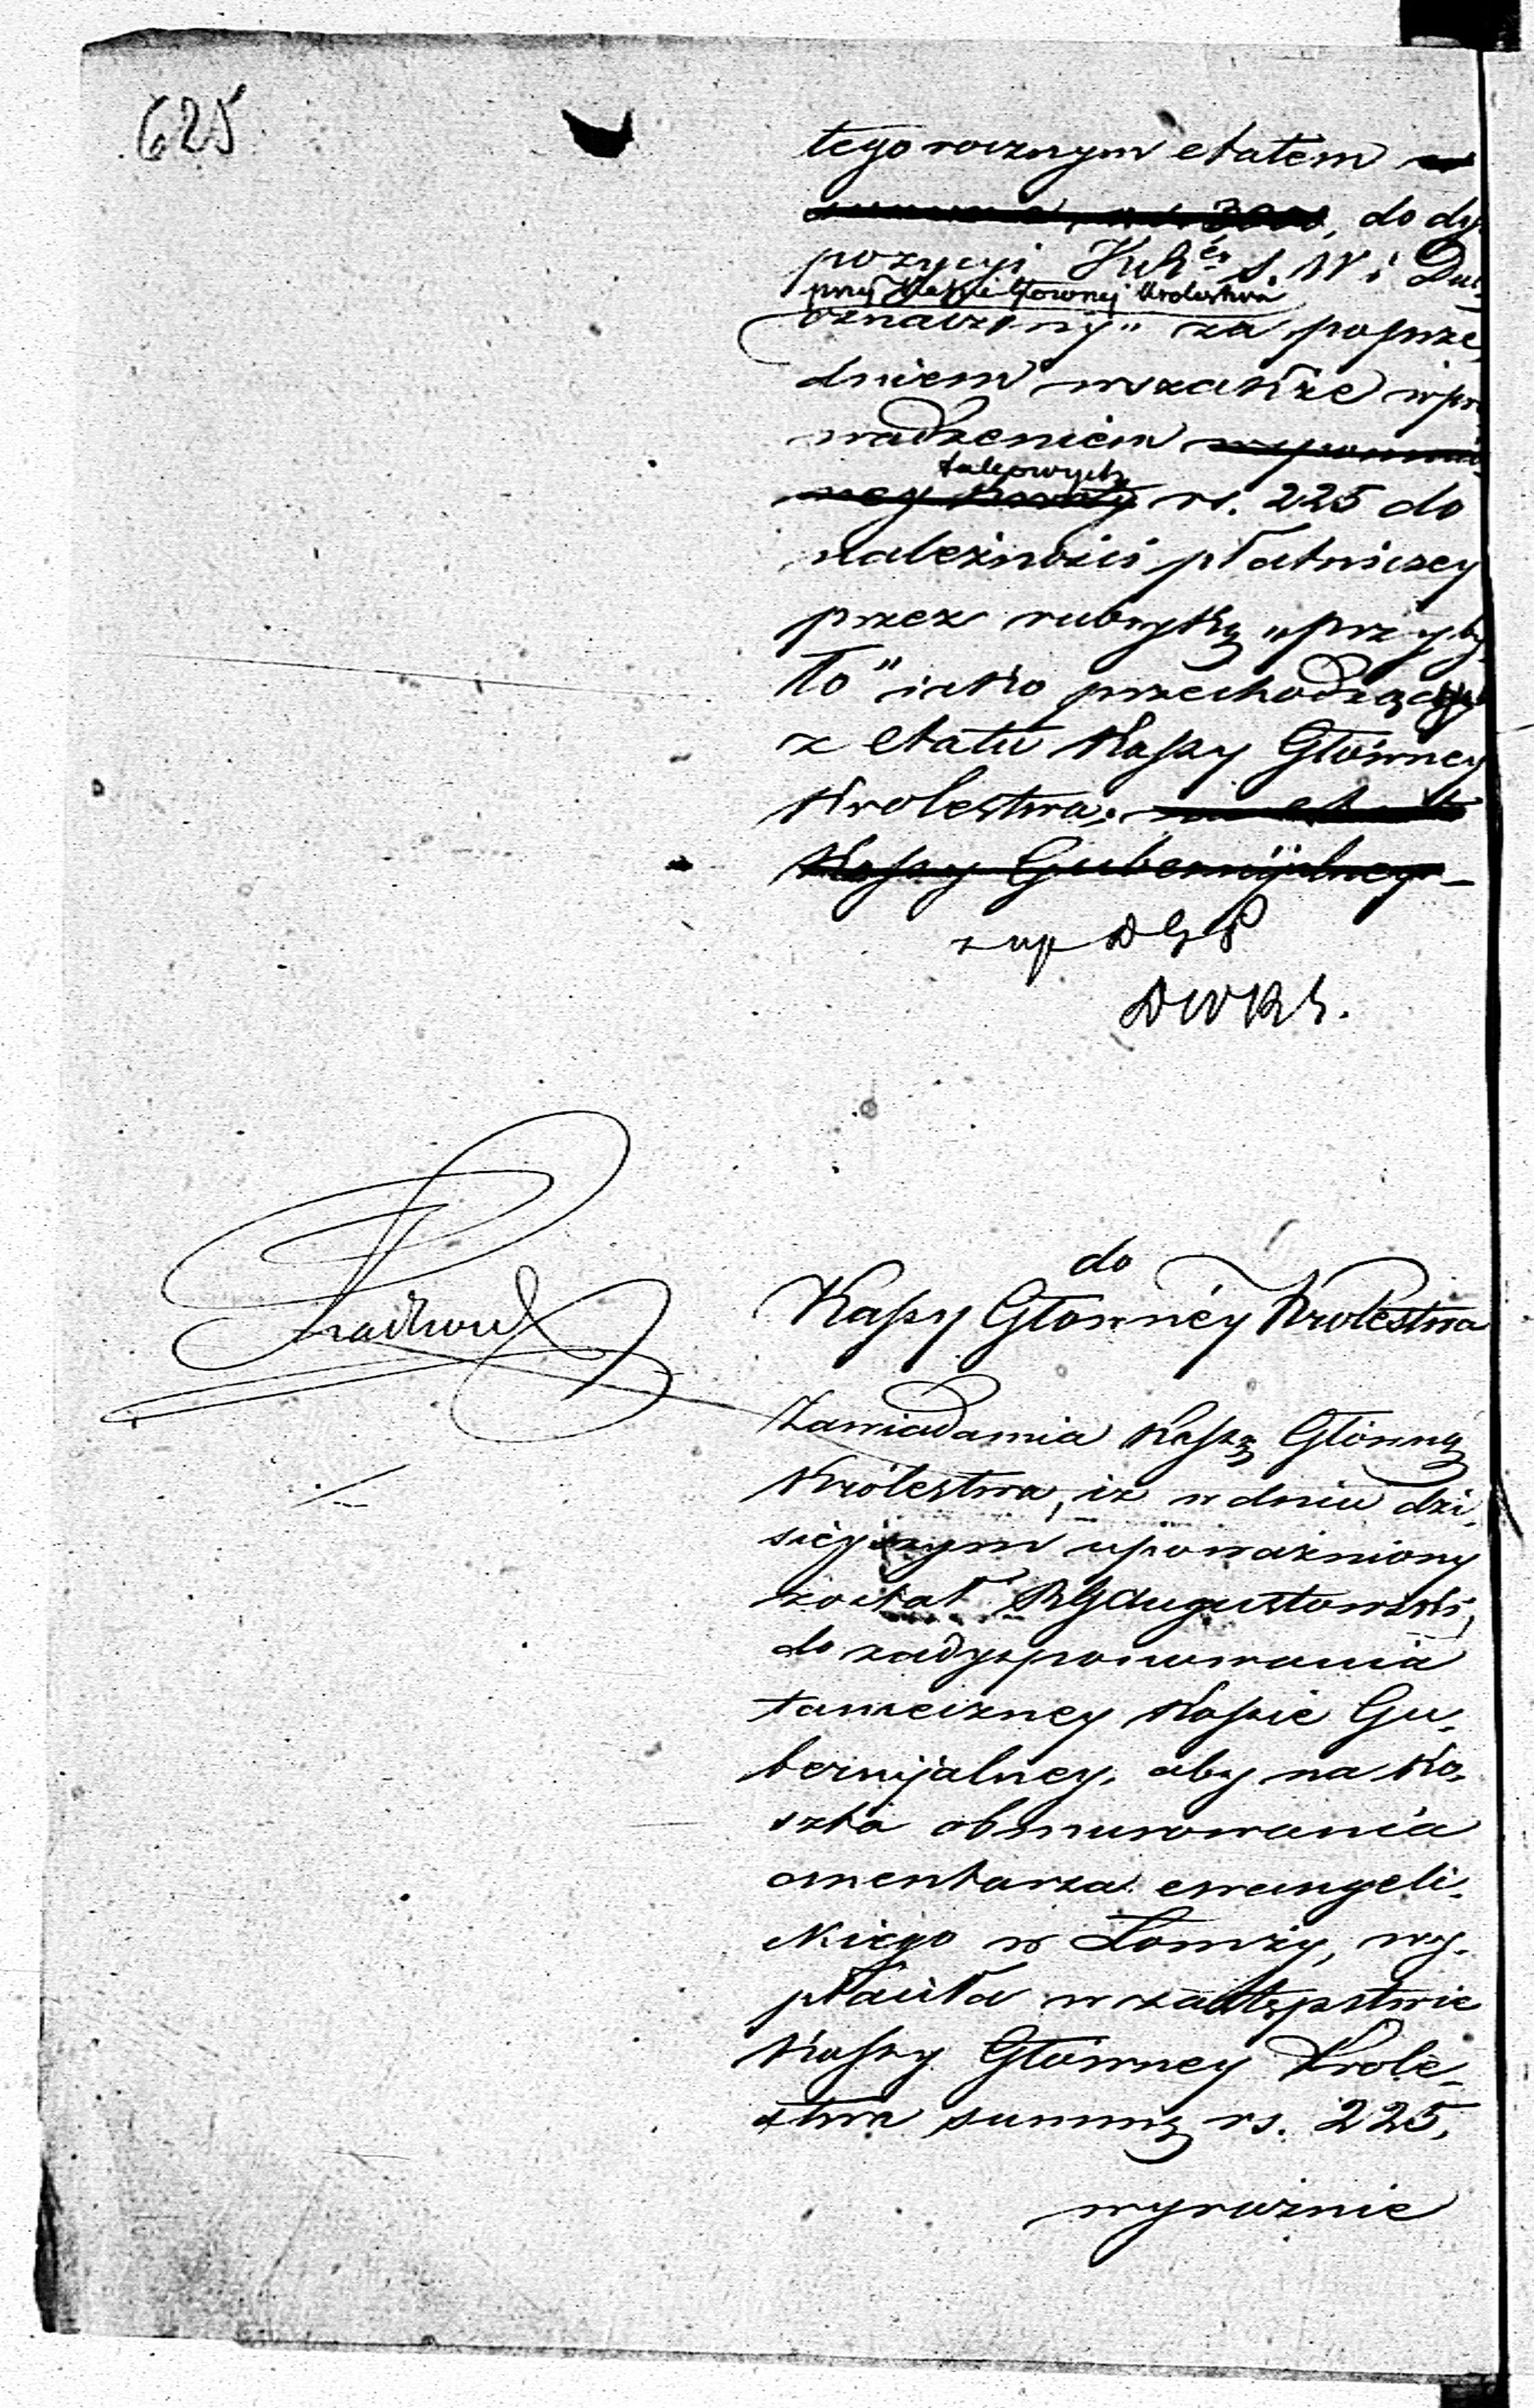 625
tego rocznym etatem
do dy
pozycyi S. W i Du
przy Kassie Głownej Krolestwa
oznaczony" za poprze
dniem wszakże wpro
wadzeniem wspomnio
takowych
ney kwoty rs. 225 do
należności płatniczey
przez rubrykę „przyby
ło" iako przechodzących
z etatu Kassy Głowney
Krolestwa;
Kassy Gubernijalney
z up D G P
D W K S.
do
Kassy Głownéy Krolestwa
Zawiadamia Kassę Głowną
Królestwa, iż w dniu dzi,
sieyszym upoważniony
został RGAugustowski,
do zadysponowania
tameczney Kassie Gu,
bernijalney, aby na ko,
szta obmurowania
cmentarza ewangeli,
ckiego w Łomży, wy,
płaciła w zastępstwie
Kassy Głowney Krole,
stwa summę rs. 225,
wyraźnie